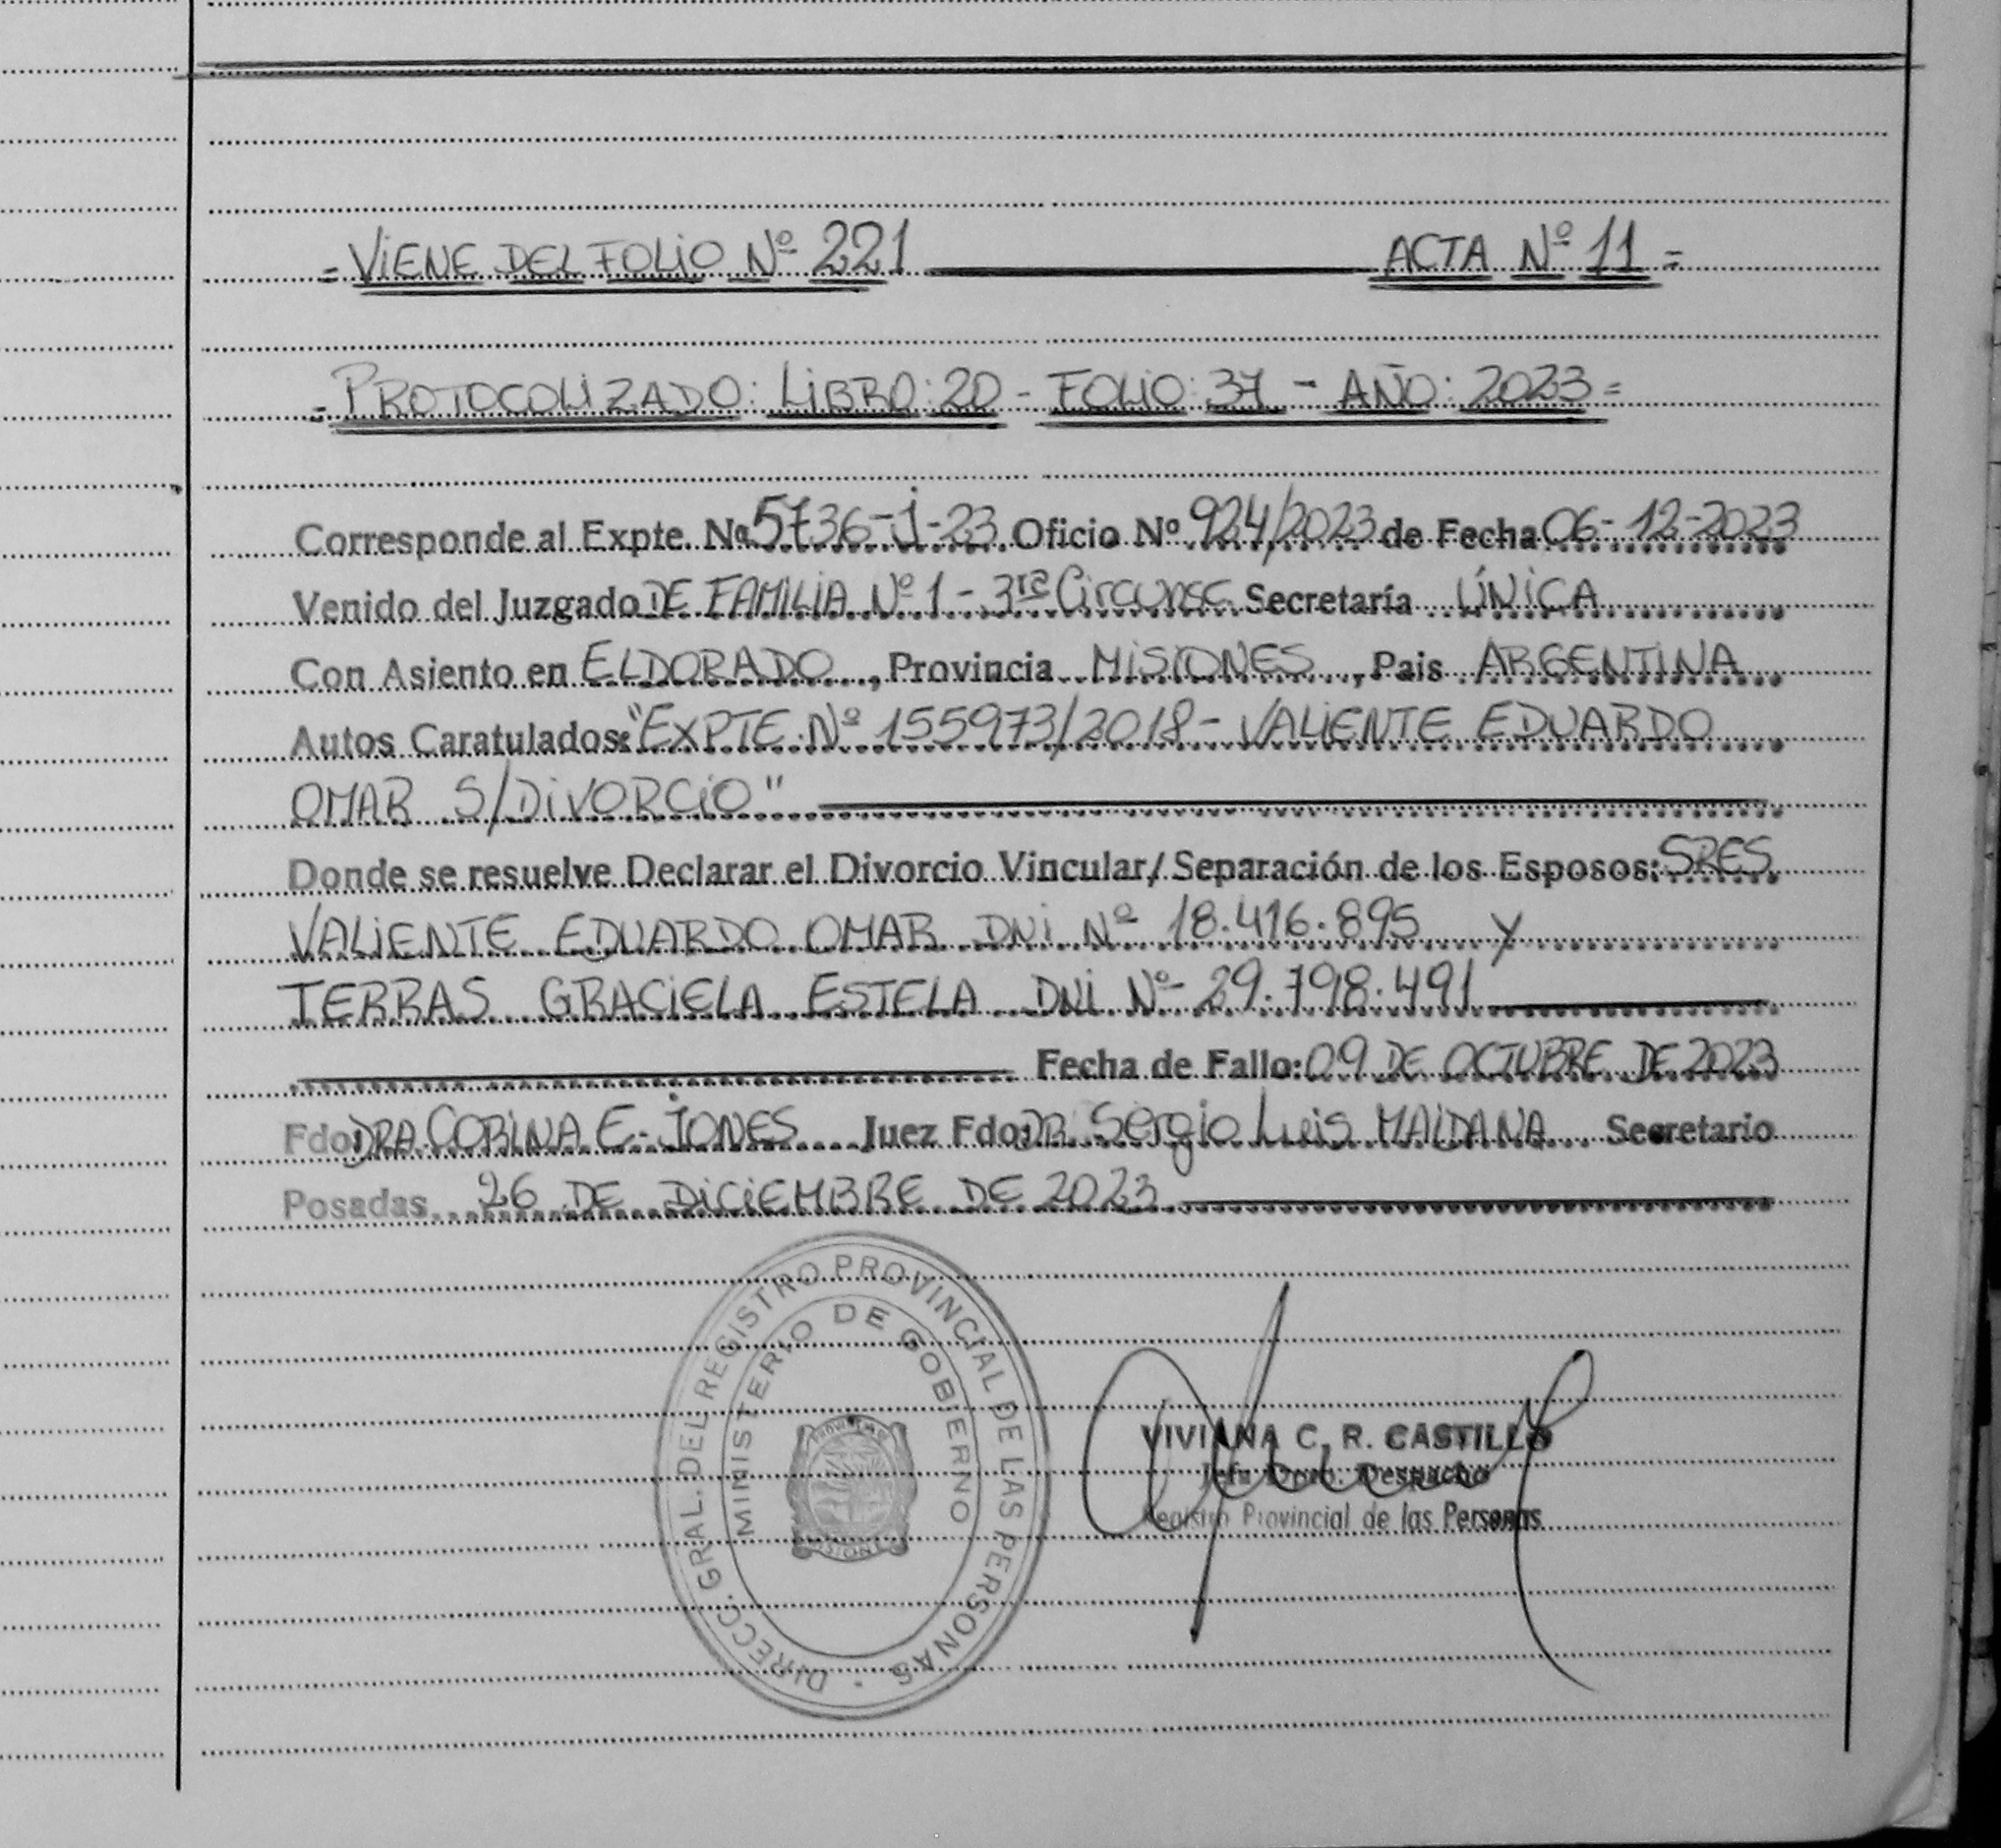 = VIENE DEL FOLIO Nº 221 ACTA Nº 11 =
= PROTOCOLIZADO: LIBRO: 20 - FOLIO: 37 - AÑO: 2023 =
Corresponde al Expte. Nº 5736-J-23 Oficio Nº 924/2023 de Fecha 06-12-2023
Venido del Juzgado DE FAMILIA Nº 1 - 3ra Circunsc. Secretaría ÚNICA
Con Asiento en ELDORADO, Provincia MISIONES, Pais ARGENTINA
Autos Caratulados: "EXPTE Nº 155973/2018 - VALIENTE EDUARDO
OMAR S/DIVORCIO"
Donde se resuelve Declarar el Divorcio Vincular/ Separación de los Esposos: SRES
VALIENTE EDUARDO OMAR DNI Nº 18.416.895 y
TERRAS GRACIELA ESTELA DNI Nº 29.798.491
Fecha de Fallo: 09 DE OCTUBRE DE 2023
Fdo: DRA. CORINA E. JONES Juez Fdo: DR. Sergio Luis MALDANA Secretario
Posadas, 26 DE DICIEMBRE DE 2023
DIRECC. GRAL. DEL REGISTRO PROVINCIAL DE LAS PERSONAS
MINISTERIO DE GOBIERNO
VIVIANA C. R. CASTILLO
Jefa Dpto. Despacho
Registro Provincial de las Personas